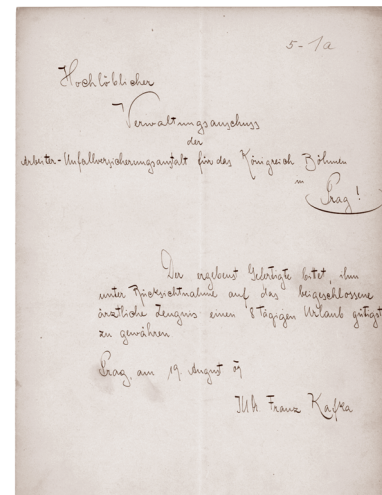 5-1a
Hochlöblicher
Verwaltungsausschuss
der
Arbeiter-Unfallversicherungsanstalt für das Königreich Böhmen
in
Prag!
Der ergebenst Gefertigte bittet, ihm
unter Rücksichtnahme auf das beigeschlossene
ärztliche Zeugnis einen 8 tägigen Urlaub gütigst
zu gewähren.
Prag, am 19. August 09
Franz Kafka